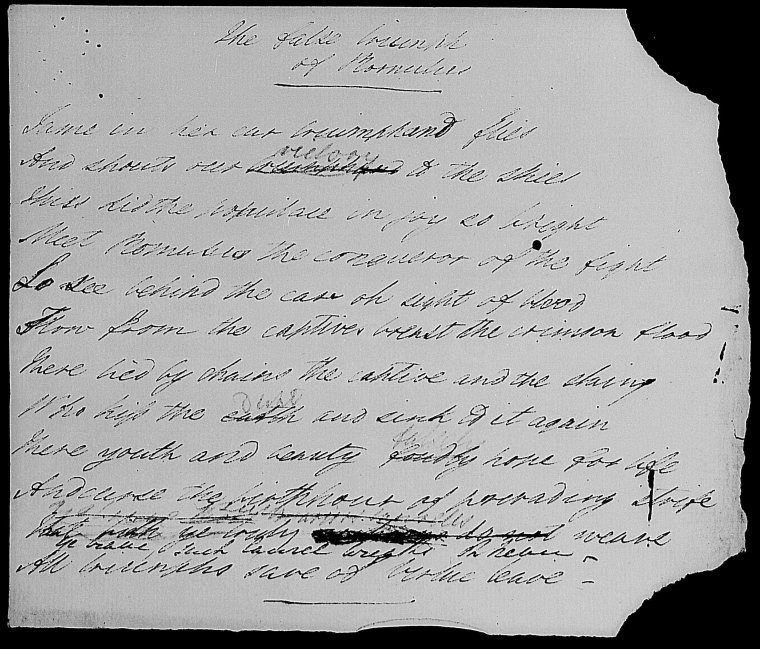 The false triumph
of Romulus
Fame in her car triumphand flies
victory
And shouts our triumphand to the skies
Thus did the populace in joy so bright
Meet Romulus the conqueror of the fight
Lo see behind the car oh sight of blood
Flow from the captives breast the crimson flood
There tied by chains the captive and the slain
Dust
Who kiss the earth and sink to it again
There youth and beauty fondly hope for life
And curse the birthhour of pervading strife
That ye truly do not weave
Ye brave such laurel wreaths to never
All triumphs save of virtue leave –